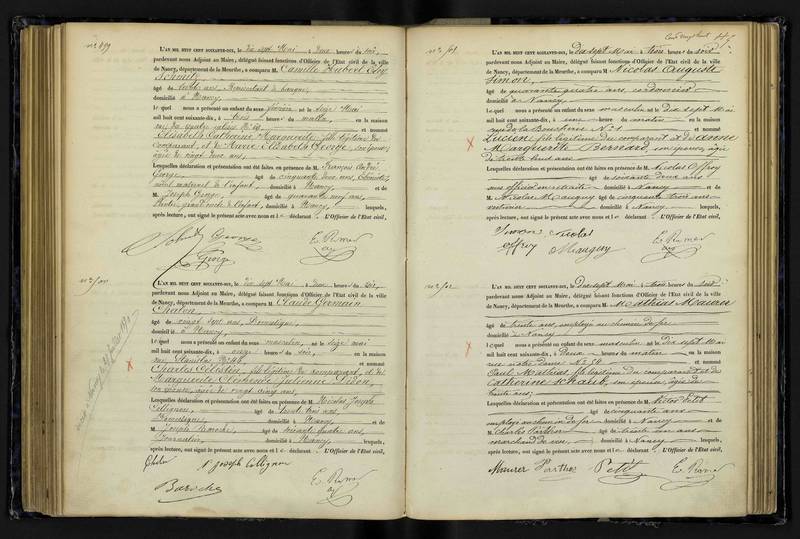 L'AN MIL HUIT CENT SOIXANTE-DIX, le dix sept Mai à deux heures du soir,
pardevant nous Adjoint au Maire, délégué faisant fonctions d'Officier de l'État civil de la ville
de Nancy, département de la Meurthe, a comparu M. Camille Hubert
Schmitz,
âgé de trente ans, Représentant de
domicilié à Nancy,
lequel nous a présenté un enfant du sexe féminin, né le seize Mai
mil huit cent soixante-dix, à trois heures du matin, en la maison
rue des quatre églises N° 69, et nommé
Elisabeth Catherine Marguerite, fille légitime du
comparant, et de Marie Elisabeth George, son épouse,
âgée de vingt deux ans,
Lesquelles déclaration et présentation ont été faites en présence de M. François André
George, âgé de cinquante deux ans, Ebéniste,
aïeul maternel de l'enfant, domicilié à Nancy, et de
M. Joseph George, âgé de quarante neuf ans,
grand oncle de l'enfant, domicilié à Nancy, lesquels,
après lecture, ont signé le présent acte avec nous et le déclarant. L'Officier de l'État civil,
Schmitz George
George
L'AN MIL HUIT CENT SOIXANTE-DIX, le dix sept Mai à deux heures du soir,
pardevant nous Adjoint au Maire, délégué faisant fonctions d'Officier de l'État civil de la ville
de Nancy, département de la Meurthe, a comparu M. Claude Germain
Chalon,
âgé de vingt sept ans, Domestique,
domicilié à Nancy,
lequel nous a présenté un enfant du sexe masculin, né le seize mai
mil huit cent soixante-dix, à onze heures du soir, en la maison
rue Stanislas N° 48, et nommé
Charles Célestin, fils légitime du comparant, et de
Marguerite Julienne
son épouse, âgée de vingt cinq ans,
Lesquelles déclaration et présentation ont été faites en présence de M. Nicolas Joseph
Collignon, âgé de trente trois ans,
Domestique, domicilié à Nancy, et de
M. Joseph âgé de soixante quatre ans,
Journalier, domicilié à Nancy, lesquels,
après lecture, ont signé le présent acte avec nous et le déclarant. L'Officier de l'État civil,
Chalon N. Joseph Collignon
L'AN MIL HUIT CENT SOIXANTE-DIX, le dix sept Mai à trois heures du soir
pardevant nous Adjoint au Maire, délégué faisant fonctions d'Officier de l'État civil de la ville
de Nancy, département de la Meurthe, a comparu M. Nicolas Auguste
Simon,
âgé de quarante quatre ans, cordonnier
domicilié à Nancy
lequel nous a présenté un enfant du sexe masculin né le Dix sept Mai
mil huit cent soixante-dix, à une heure du matin en la maison
rue de la Boucherie N° 1 et nommé
Lucien, fils légitime du comparant et de
Marguerite Bernard, son épouse, âgée
de trente huit ans
Lesquelles déclaration et présentation ont été faites en présence de M. Nicolas Offroy
âgé de soixante deux ans
officier en retraite domicilié à Nancy et de
M. Nicolas Maugny âgé de cinquante trois ans
domicilié à Nancy lesquels,
après lecture, ont signé le présent acte avec nous et le déclarant. L'Officier de l'État civil,
Simon Nicolas
Offroy Maugny
L'AN MIL HUIT CENT SOIXANTE-DIX, le Dix sept Mai à trois heures du soir
pardevant nous Adjoint au Maire, délégué faisant fonctions d'Officier de l'État civil de la ville
de Nancy, département de la Meurthe, a comparu M. Mathias Maurer
âgé de trente ans, employé au chemin de fer
domicilié à Nancy
lequel nous a présenté un enfant du sexe masculin né le Dix sept Mai
mil huit cent soixante-dix, à Deux heures du matin en la maison
rue notre dame N° 50 et nommé
Paul Mathias, fils légitime du comparant et de
Catherine son épouse, âgée de
trente ans
Lesquelles déclaration et présentation ont été faites en présence de M. Victor Petit
âgé de cinquante ans
employé au chemin de fer domicilié à Nancy et de
M. Charles Parthes âgé de trente ans
marchand de vin, domicilié à Nancy lesquels,
après lecture, ont signé le présent acte avec nous et le déclarant. L'Officier de l'État civil,
Maurer Parthes Petit